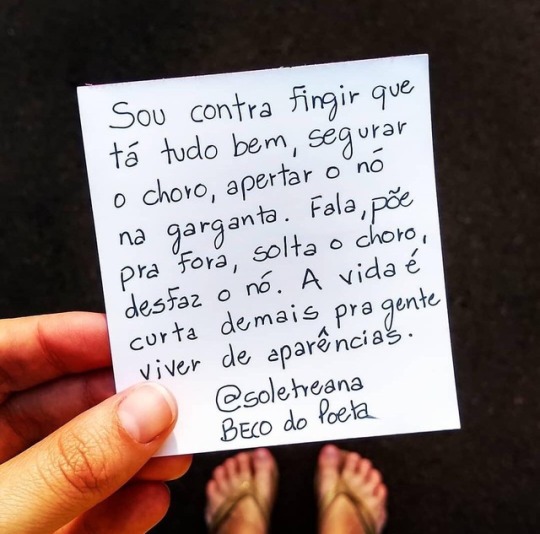 Sou contra fingir que
tá tudo bem, segurar
o choro, apertar o nó
na garganta. Fala, põe
pra fora, solta o choro,
desfaz o nó. A vida é
curta demais pra gente
viver de aparências.
@soletreana
BECO do Poeta